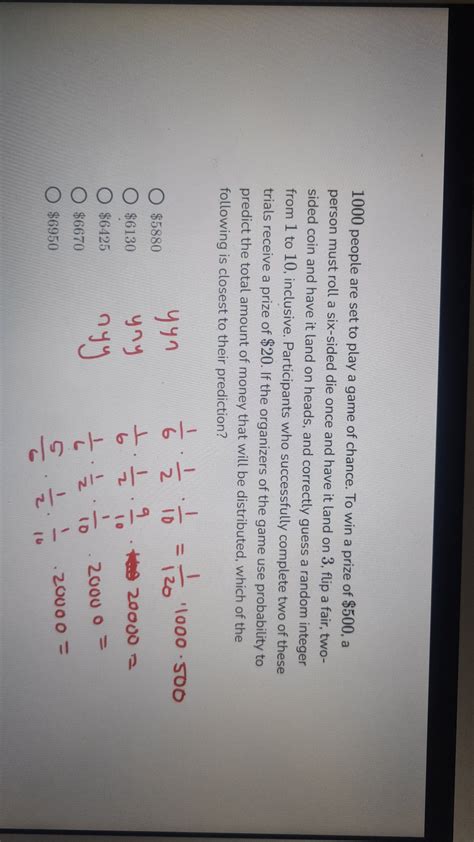 1000 people are set to play a game of chance. To win a prize of $500, a
person must roll a six-sided die once and have it land on 3, flip a fair, two-
sided coin and have it land on heads, and correctly guess a random integer
from 1 to 10, inclusive. Participants who successfully complete two of these
trials receive a prize of $20. If the organizers of the game use probability to
predict the total amount of money that will be distributed, which of the
following is closest to their prediction?
$5880
$6130
$6425
$6670
$6950
1/6 · 1/2 · 1/10 = 1/120 · 1000 · 500
yyn 1/6 · 1/2 · 9/10 · 20000 =
yny 1/6 · 1/2 · 1/10 · 20000 =
nyy 5/6 · 1/2 · 1/10 · 20000 =